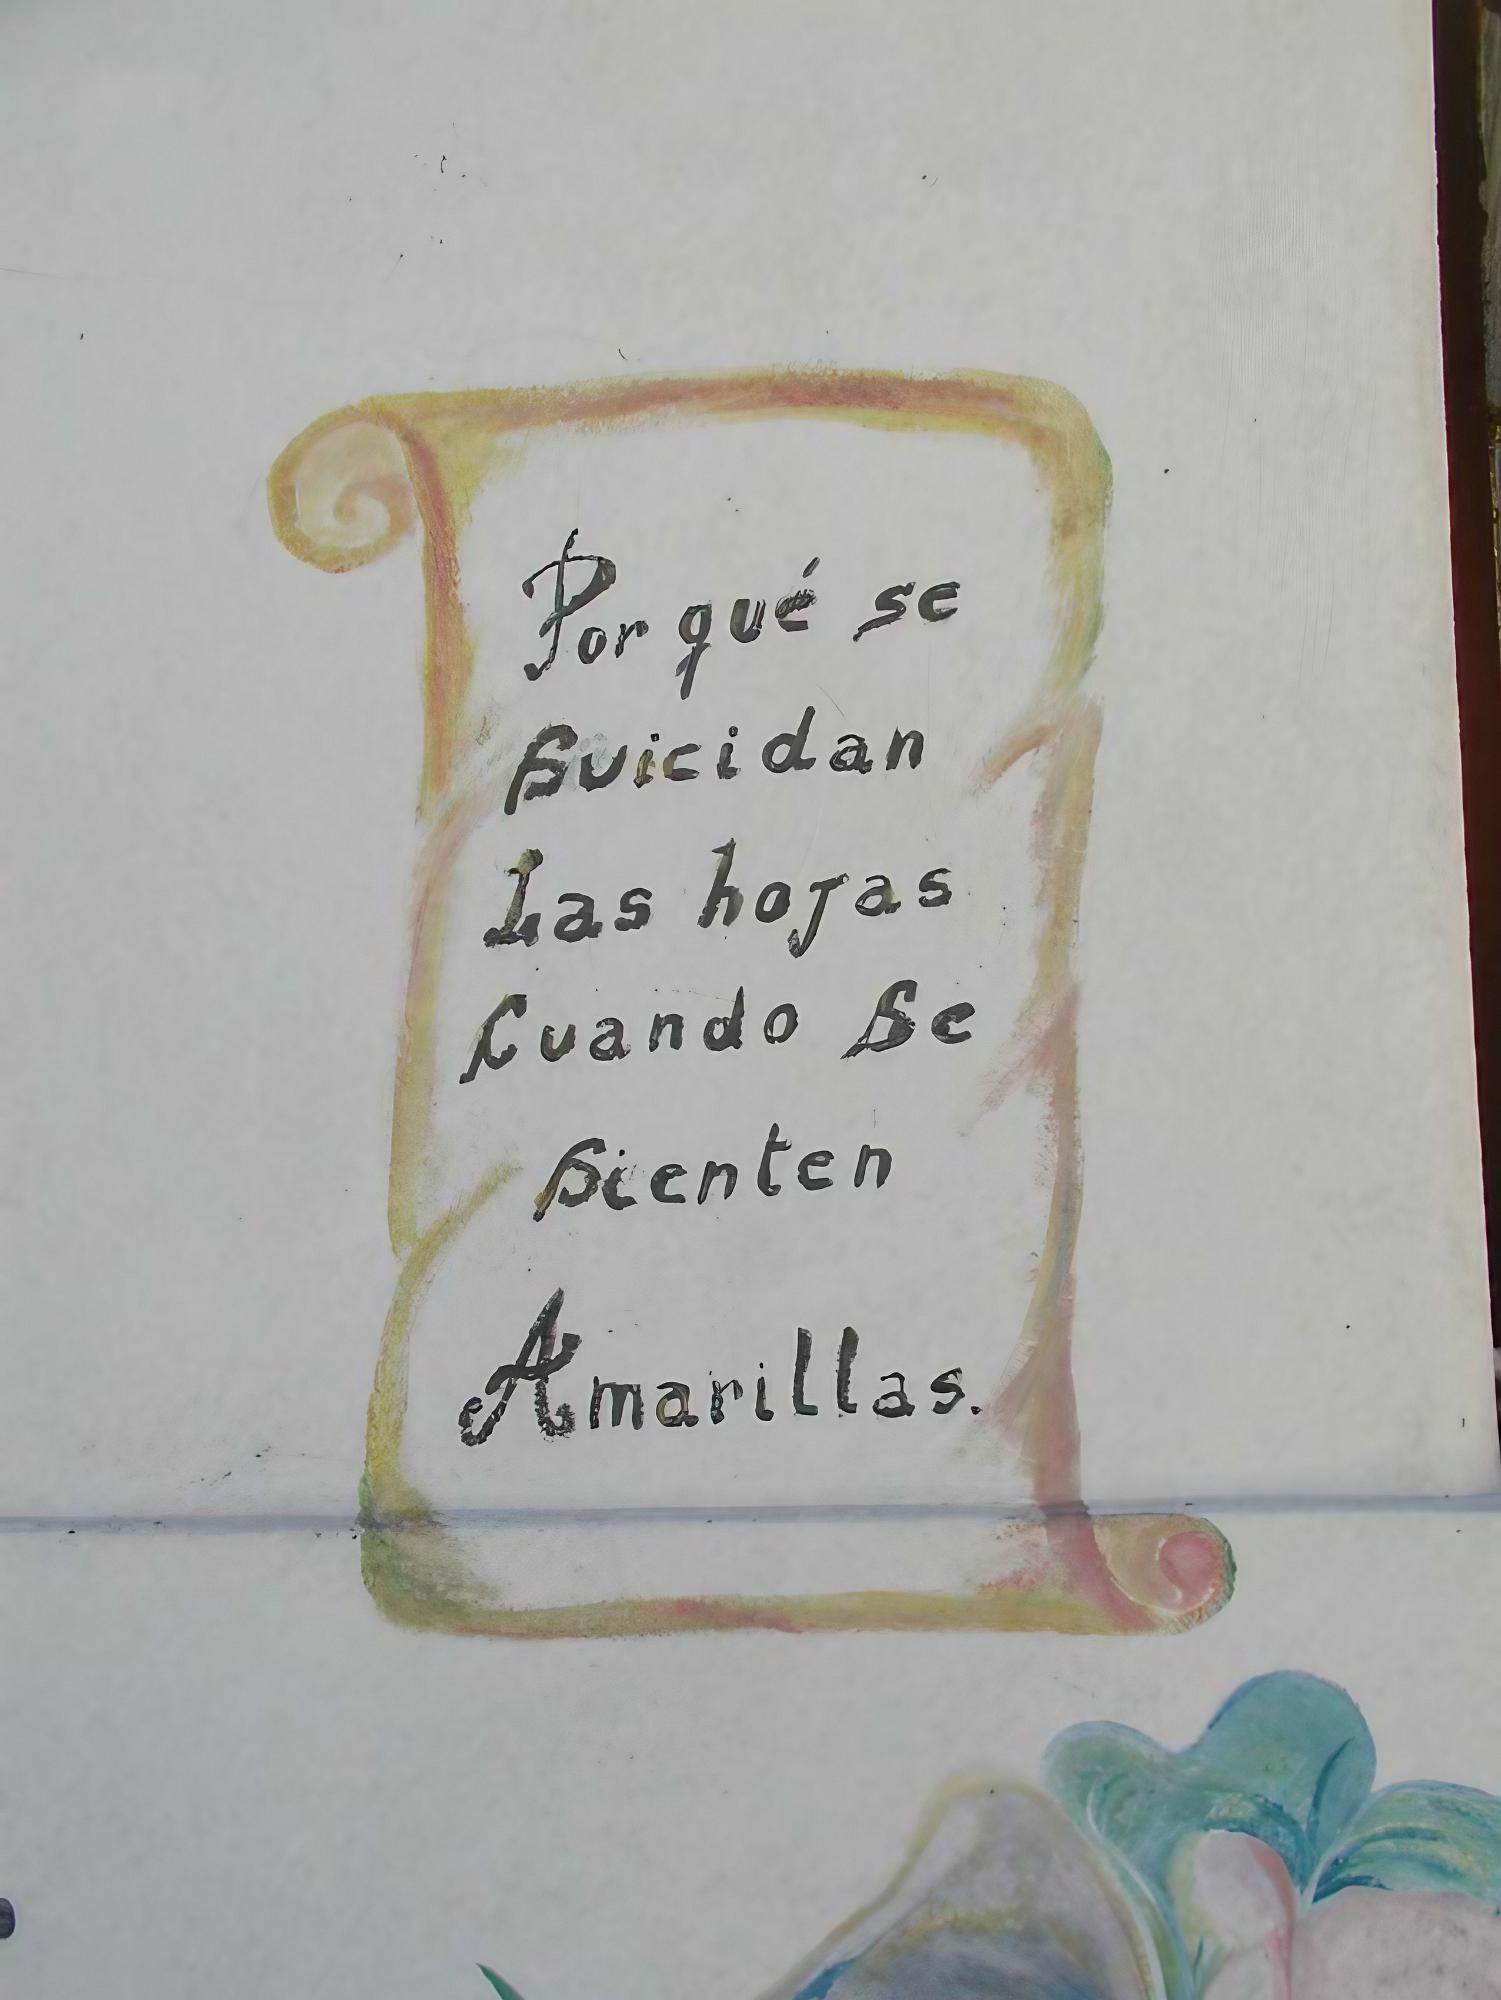 Por qué se
Suicidan
Las hojas
Cuando Se
Sienten
Amarillas.